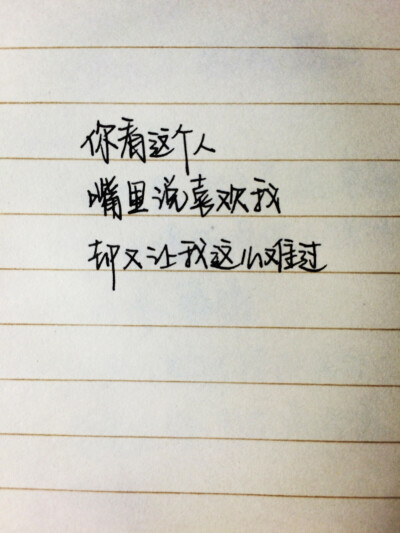 你看这个人
嘴里说喜欢我
却又让我这么难过